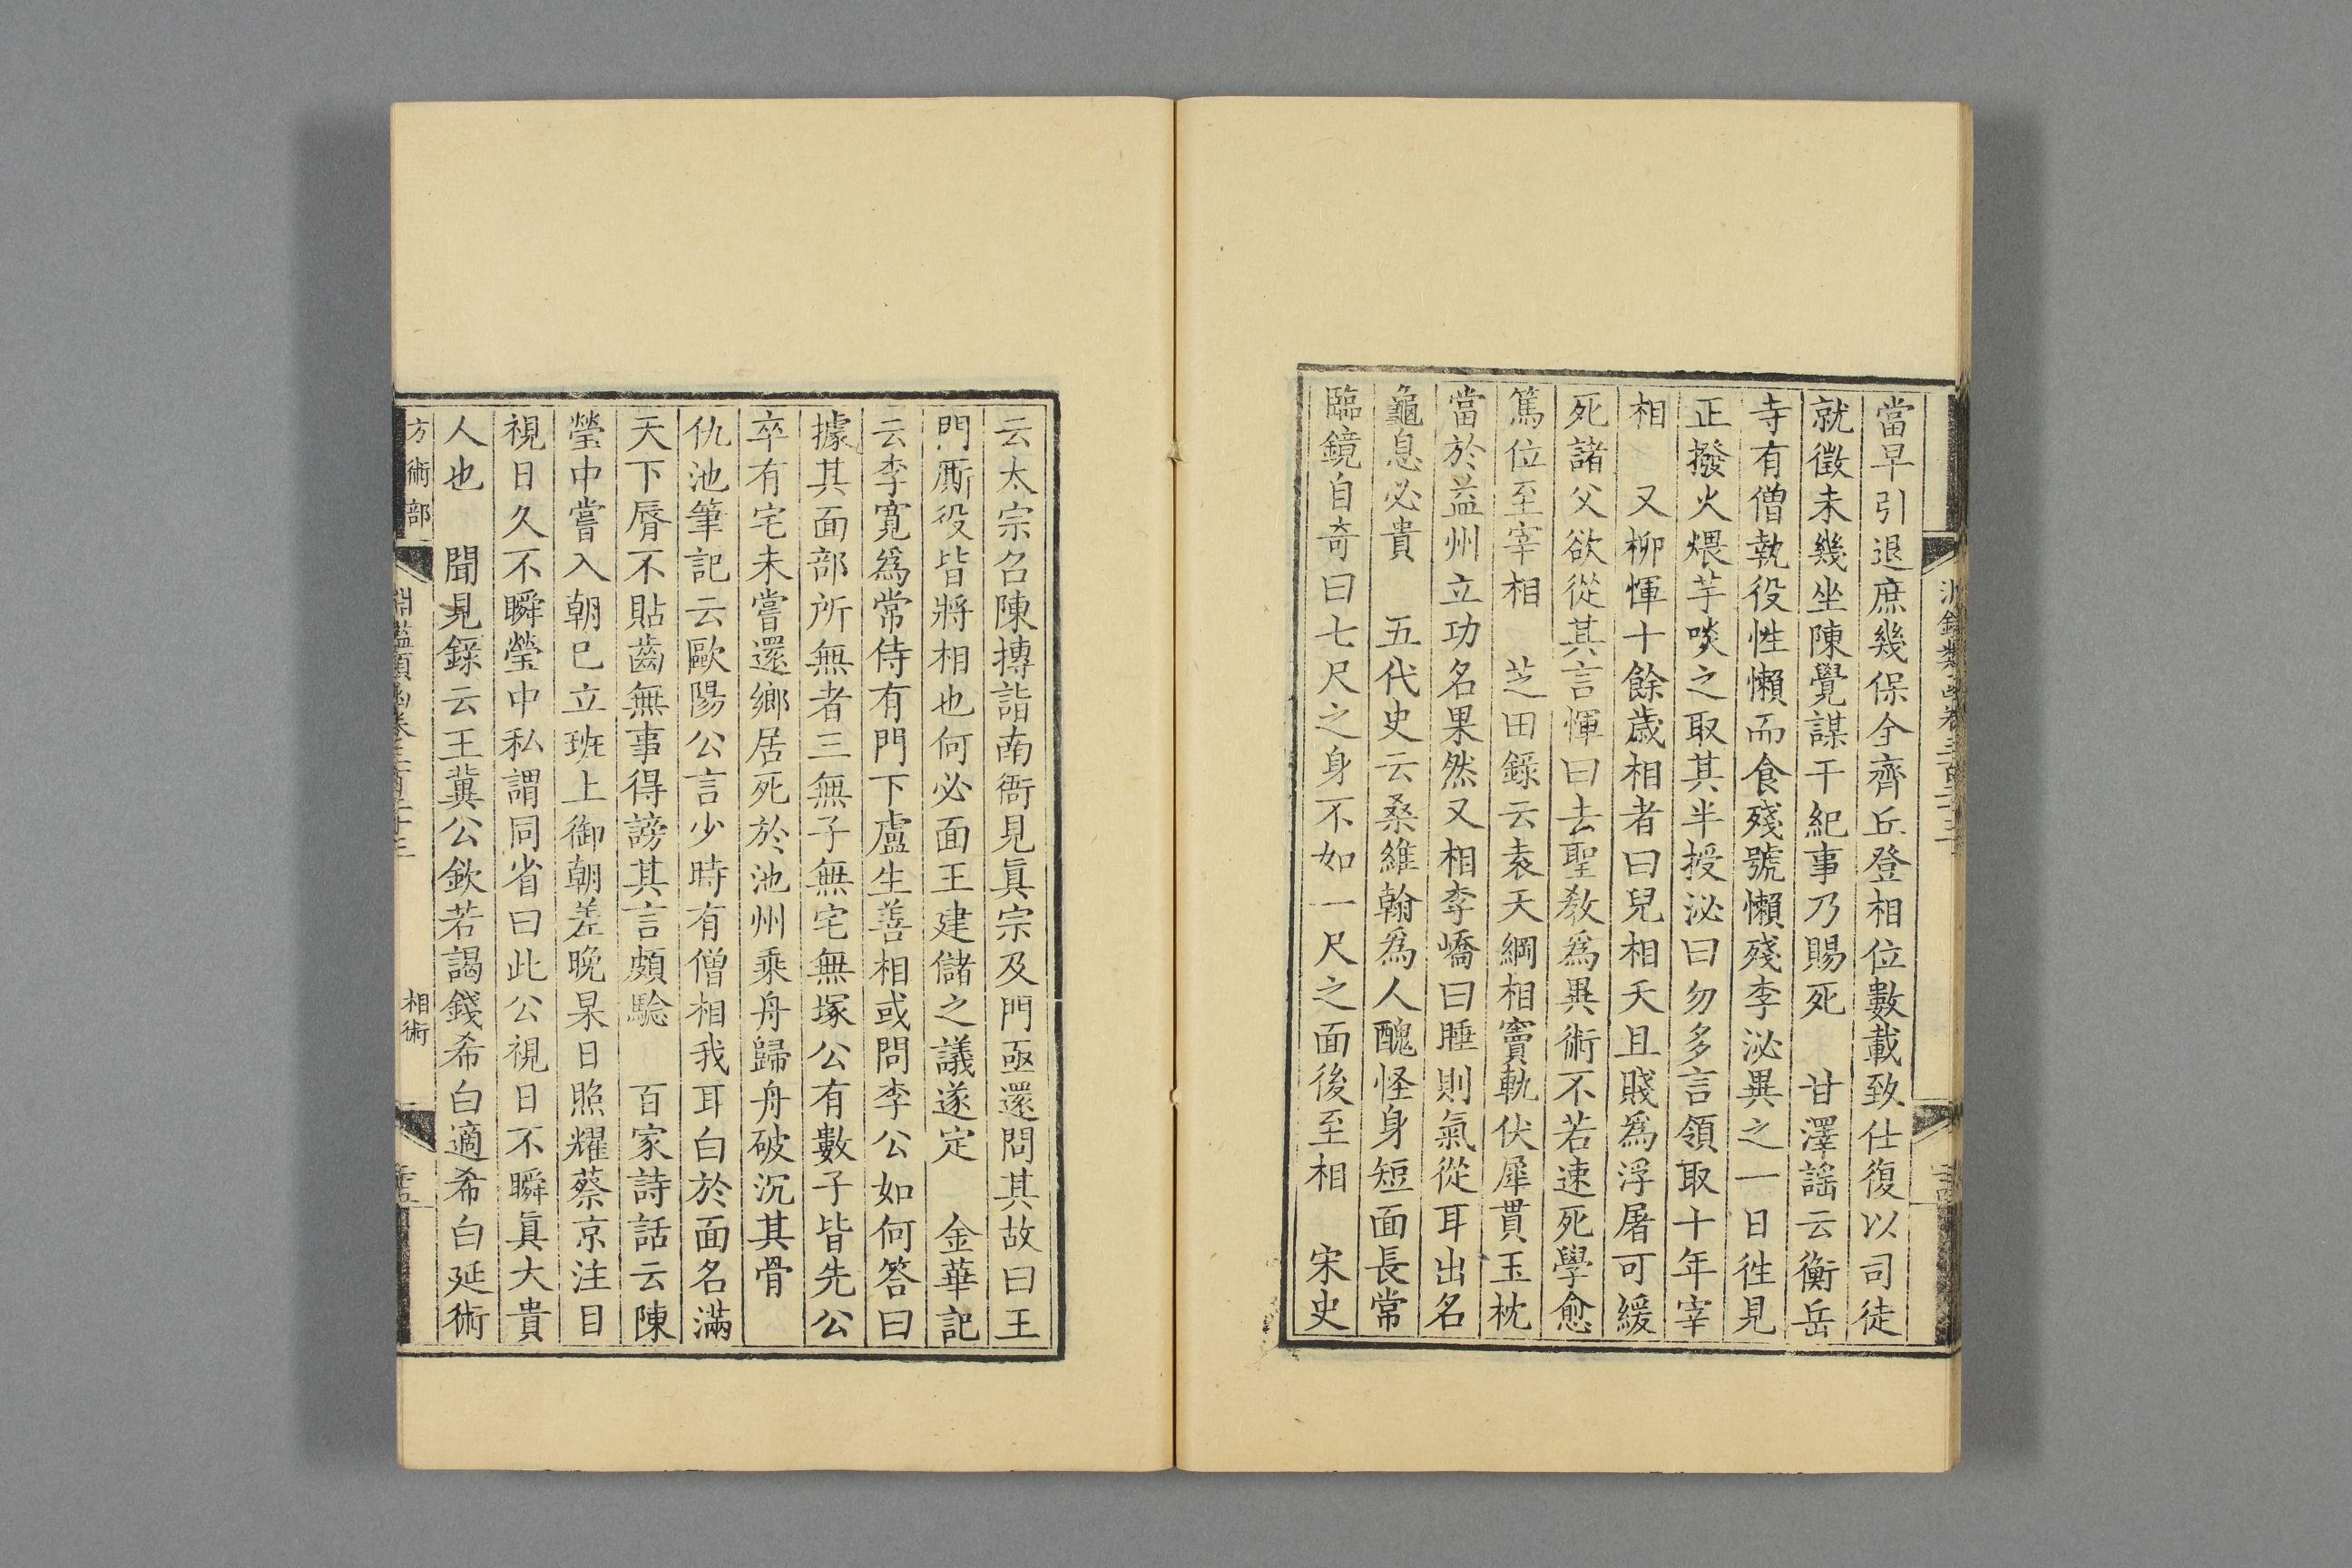 當早引退庶幾保全齊丘登相位數載致仕復以司徒
就徵未幾坐陳覺謀干紀事乃賜死　甘澤謡云衡岳
寺有僧執役性懶而食殘號懶殘李泌異之一日徃見
正撥火煨芋啖之取其半授泌曰勿多言領取十年宰
相　又柳惲十餘歲相者曰兒相夭且賤爲浮屠可緩
死諸父欲從其言惲曰去聖敎爲異術不若速死學愈
篤位至宰相　芝田錄云袁天綱相竇軌伏犀貫玉枕
當於益州立功名果然又相李嶠曰睡則氣從耳出名
龜息必貴　五代史云桑維翰爲人醜怪身短面長常
臨鏡自奇曰七尺之身不如一尺之面後至相　宋史
云太宗召陳摶詣南衙見眞宗及門亟還問其故曰王
門厮役皆將相也何必面王建儲之議遂定　金華記
云李寛爲常侍有門下盧生善相或問李公如何答曰
據其面部所無者三無子無宅無塚公有數子皆先公
卒有宅未嘗還鄉居死於池州乘舟歸舟破沉其骨
仇池筆記云歐陽公言少時有僧相我耳白於面名滿
天下脣不貼齒無事得謗其言頗驗　百家詩話云陳
瑩中嘗入朝巳立班上御朝差晚杲日照耀蔡京注目
視日久不瞬瑩中私謂同省曰此公視日不瞬眞大貴
人也　聞見錄云王冀公欽若謁錢希白適希白延術
方術部
相術